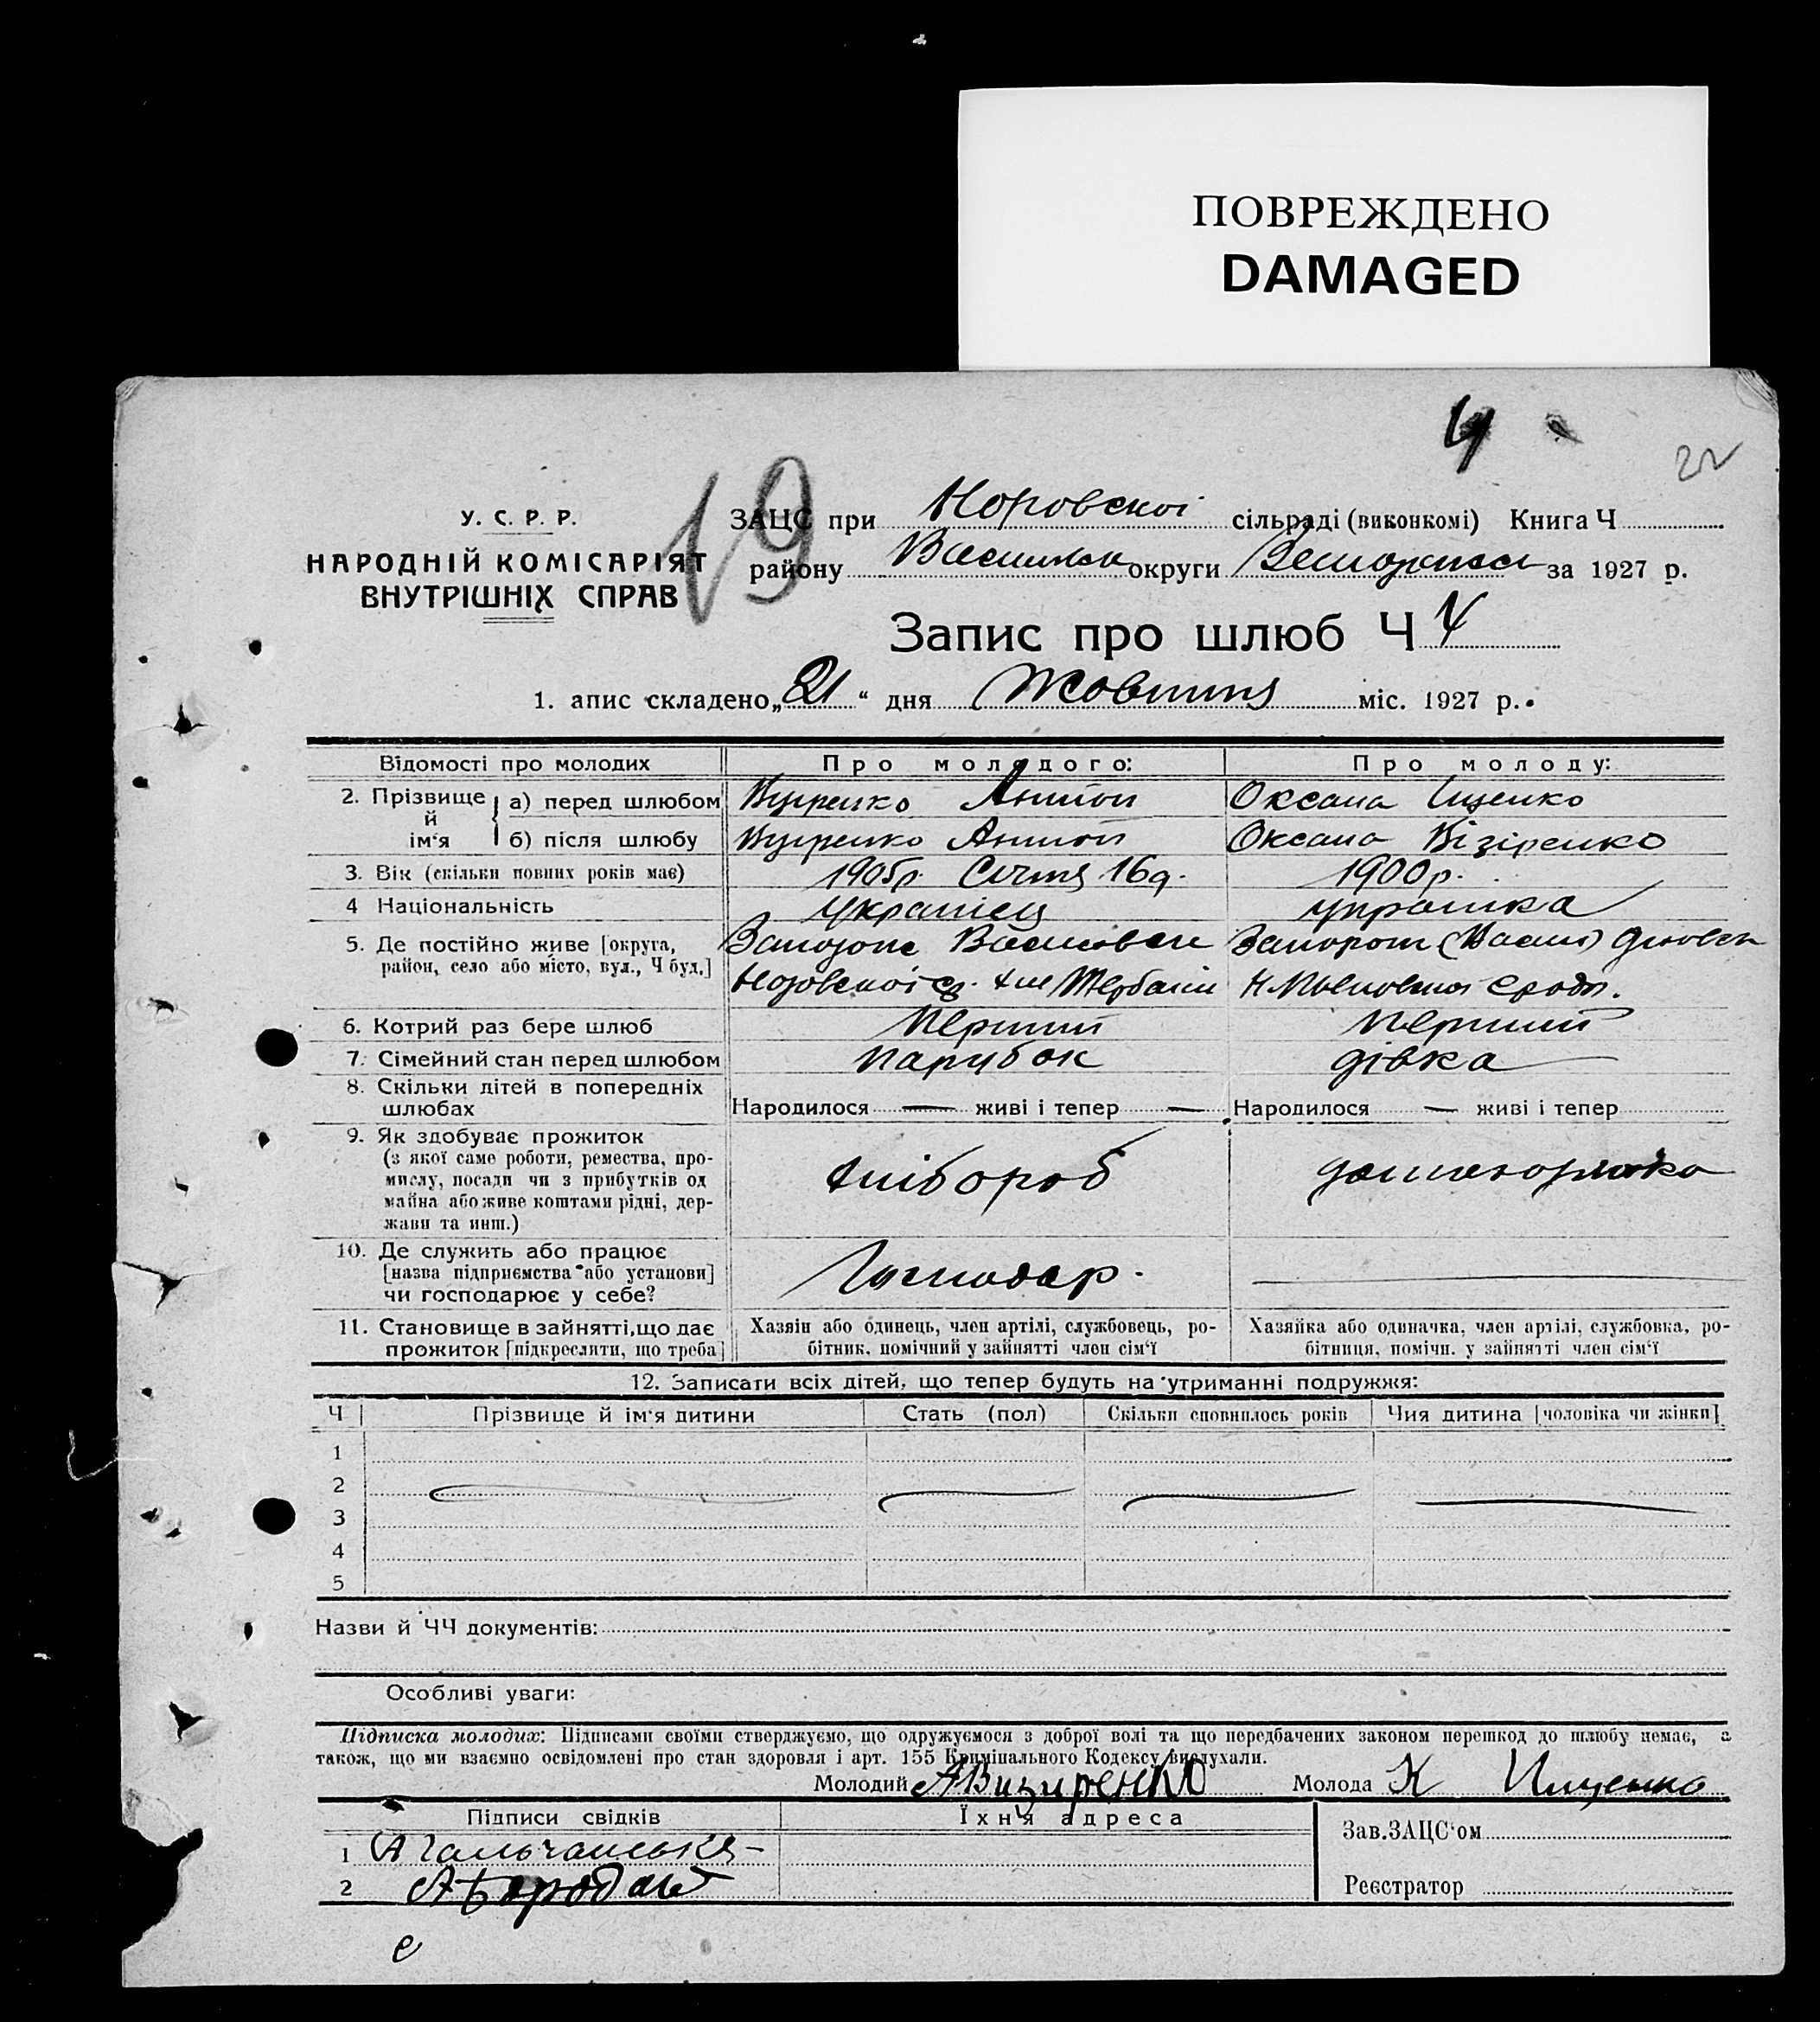 ПОВРЕЖДЕНО
DAMAGED
4
22
19
У. С. Р. Р.
НАРОДНІЙ КОМІСАРІЯТ
ВНУТРІШНІХ СПРАВ
ЗАЦС при сільраді (виконкомі) Книга Ч
району округи за 1927 р.
Запис про шлюб Ч 4
1. апис складено „21“ дня Жовтня міс. 1927 р.
Відомості про молодих Про молодого: Про молоду:
2. Прізвище й ім‘я а) перед шлюбом Антон Оксана Іщенко
б) після шлюбу Антон Оксана Візіренко
3. Вік (скільки повних років має) 1905р. Січня 16д. 1900р.
4 Національність Українец українка
5. Де постійно живе [округа,
район, село або місто, вул., Ч буд.]
6. Котрий раз бере шлюб Перший Перший
7. Сімейний стан перед шлюбом парубок дівка
8. Скільки дітей в попередніх
шлюбах Народилося — живі і тепер — Народилося — живі і тепер
9. Як здобуває прожиток
(з якої саме роботи, ремества, про-
мислу, посади чи з прибутків од
майна або живе коштами рідні, дер-
жави та инш.)
хлібороб
10. Де служить або працює
[назва підприємства або установи]
чи господарює у себе?
Господар.
11. Становище в зайнятті, що дає Хазяїн або одинець, член артілі, службовець, ро- Хазяйка або одиначка, член артілі, службовка, ро-
прожиток [підкреслити, що треба] бітник, помічний у зайнятті член сім‘ї бітниця, помічн. у зайнятті член сім‘ї
12. Записати всіх дітей, що тепер будуть на утриманні подружжя:
Ч Прізвище й ім‘я дитини Стать (пол) Скільки сповнилось років Чия дитина [чоловіка чи жінки]
1
2
3
4
5
Назви й ЧЧ документів:
Особливі уваги:
Підписка молодих: Підписами своїми стверджуємо, що одружуємося з доброї волі та що передбачених законом перешкод до шлюбу немає, а
також, що ми взаємно освідомлені про стан здоровля і арт. 155 Кримінального Кодексу вислухали.
Молодий АВизиренко Молода К Ищенко
Підписи свідків Їхня адреса
Зав.ЗАЦС‘ом
1
2 А Бородай
Реєстратор